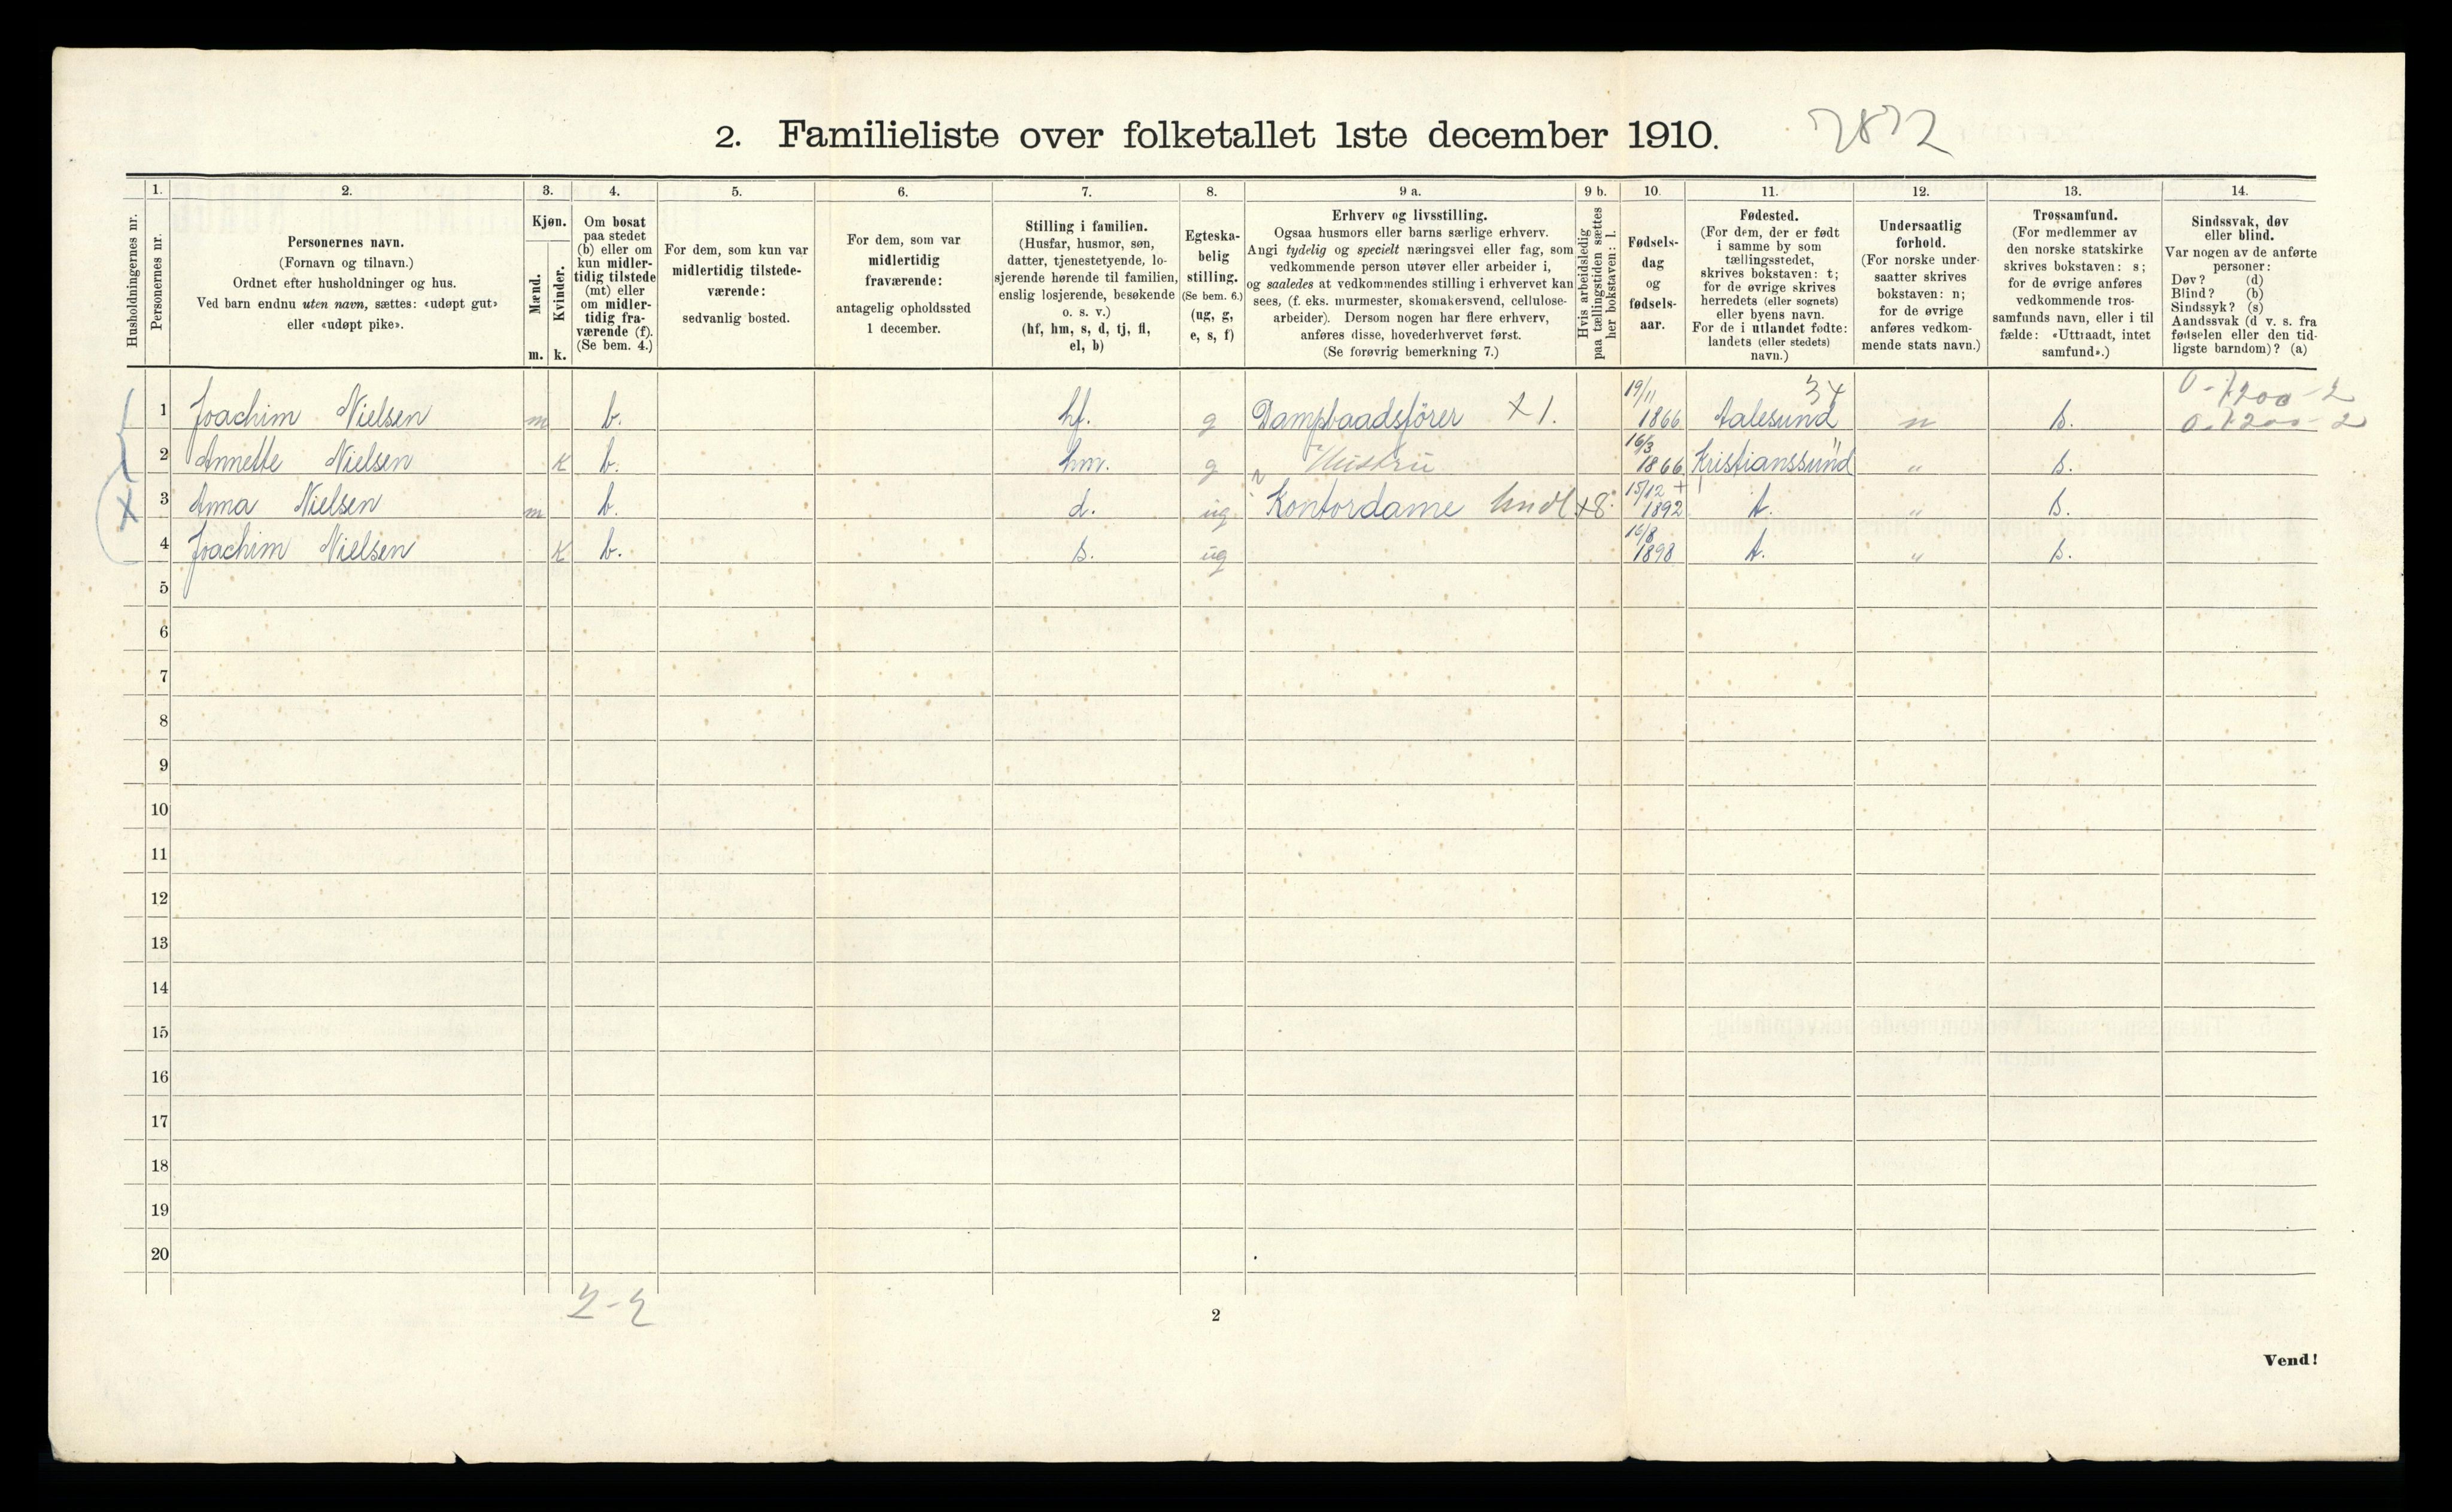 2. Familieliste over folketallet 1ste december 1910. 2872
Husholdningernes nr.
1.
Personernes nr.
2.
Personernes navn.
(Fornavn og tilnavn.)
Ordnet efter husholdninger og hus.
Ved barn endnu uten navn, sættes: «udøpt gut»
eller «udøpt pike».
3.
Kjøn.
Mænd.
Kvinder.
m. k.
4.
Om bosat
paa stedet
(b) eller om
kun midler-
tidig tilstede
(mt) eller
om midler-
tidig fra-
værende (f).
(Se bem. 4.)
5.
For dem, som kun var
midlertidig tilstede-
værende:
sedvanlig bosted.
6.
For dem, som var
midlertidig
fraværende:
antagelig opholdssted
1 december.
7.
Stilling i familien.
(Husfar, husmor, søn,
datter, tjenestetyende, lo-
sjerende hørende til familien,
enslig losjerende, besøkende
o. s. v.)
(hf, hm, s, d, tj, fl,
el, b)
8.
Egteska-
belig
stilling.
(Se bem. 6.)
(ug, g,
e, s, f)
9 a.
Erhverv og livsstilling.
Ogsaa husmors eller barns særlige erhverv.
Angi tydelig og specielt næringsvei eller fag, som
vedkommende person utøver eller arbeider i,
og saaledes at vedkommendes stilling i erhvervet kan
sees, (f. eks. murmester, skomakersvend, cellulose-
arbeider). Dersom nogen har flere erhverv,
anføres disse, hovederhvervet først.
(Se forøvrig bemerkning 7.)
9 b.
Hvis arbeidsledig
paa tællingstiden sættes
her bokstaven: l.
10.
Fødsels-
dag
og
fødsels-
aar.
11.
Fødested.
(For dem, der er født
i samme by som
tællingsstedet,
skrives bokstaven: t;
for de øvrige skrives
herredets (eller sognets)
eller byens navn.
For de i utlandet fødte:
landets (eller stedets)
navn.)
12.
Undersaatlig
forhold.
(For norske under-
saatter skrives
bokstaven: n;
for de øvrige
anføres vedkom-
mende stats navn.)
13.
Trossamfund.
(For medlemmer av
den norske statskirke
skrives bokstaven: s;
for de øvrige anføres
vedkommende tros-
samfunds navn, eller i til
fælde: «Uttraadt, intet
samfund».)
14.
Sindssvak, døv
eller blind.
Var nogen av de anførte
personer:
Døv? (d)
Blind? (b)
Sindssyk? (s)
Aandssvak (d v. s. fra
fødselen eller den tid-
ligste barndom)? (a)
1 Joachim Nielsen m b. hf. g Dampbaadsförer X 1. 19/11 1866 Aalesund 34 n s. 0-1200-2
0-1200-2
2 Annette Nielsen k b. hm. g Hustru 16/3 1866 Kristianssund " " s.
3 Anna Nielsen m b. d. ug Kontordame X8 15/12 1892 t. " s.
4 Joachim Nielsen k b. s. ug 16/8 1898 t. " s.
5
6
7
8
9
10
11
12
13
14
15
16
17
18
19
20
2-2
2
Vend!